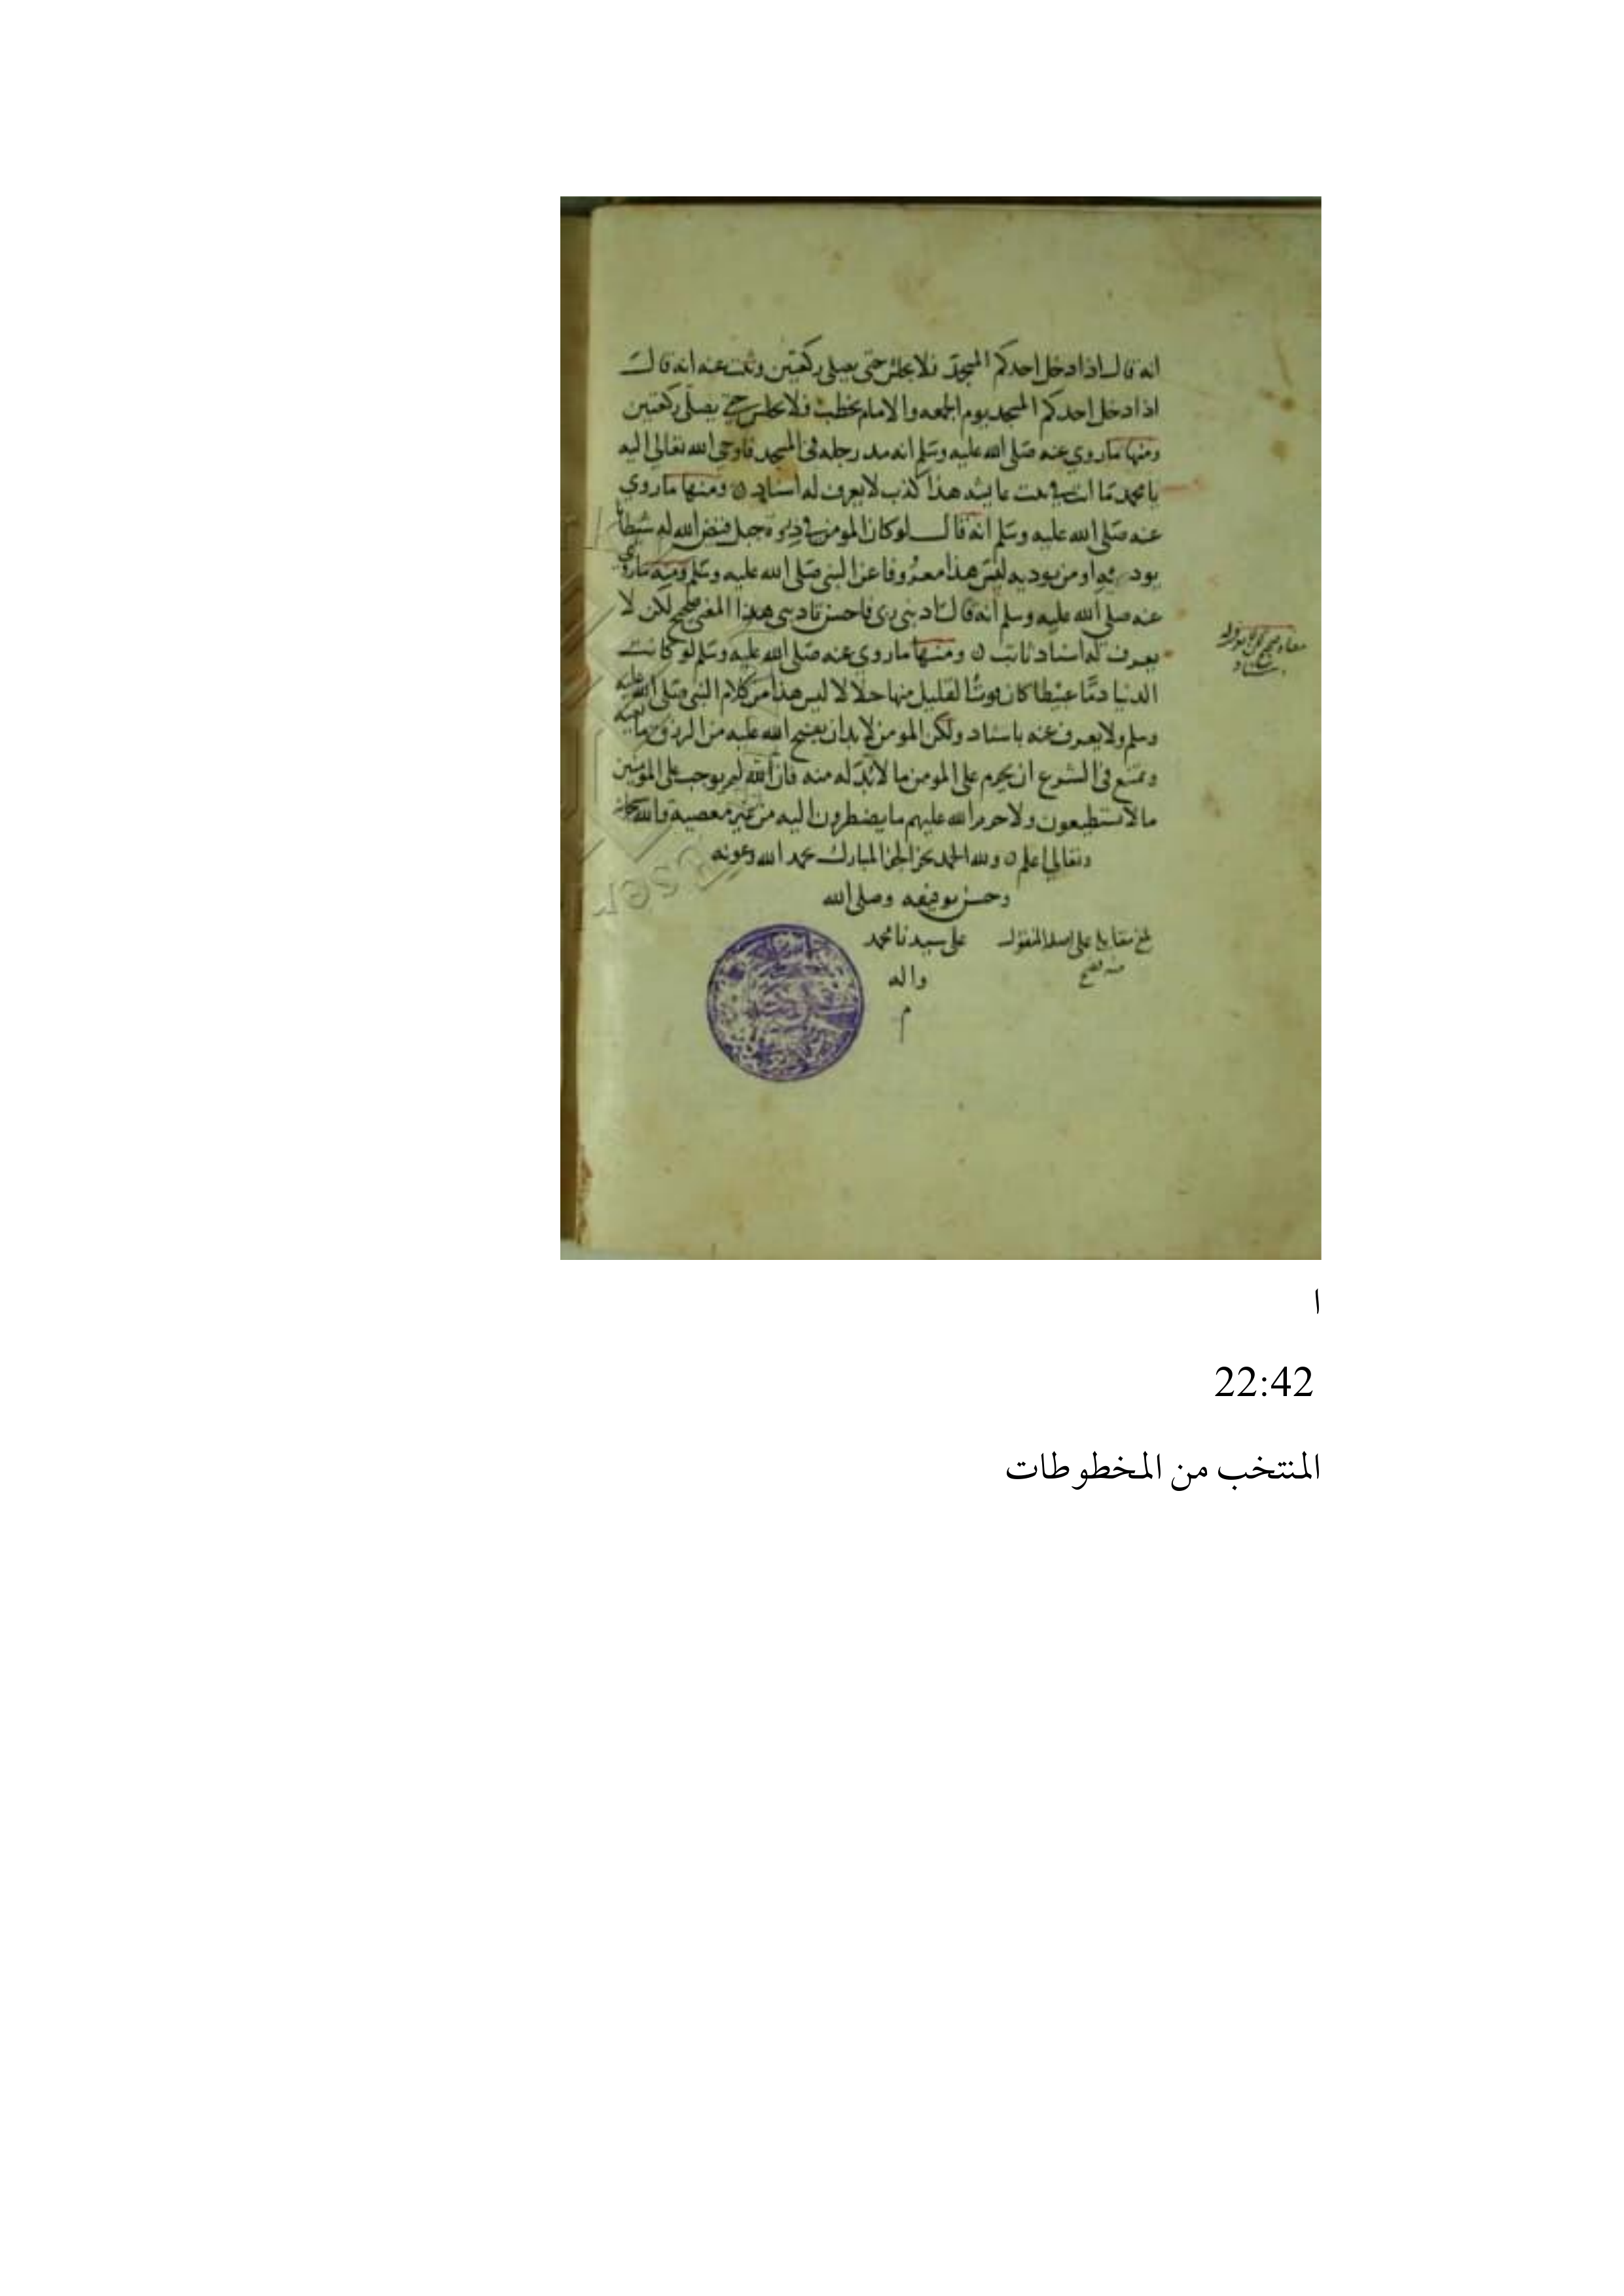 انه قال اذا دخل احدكم المسجد فلا يجلس حتى يصلي ركعتين وثبت عنه انه قال
اذا دخل احدكم المسجد يوم الجمعه والامام يخطب فلا يجلس حتى يصلي ركعتين
ومنها ماروي عنه صلى الله عليه وسلم انه مد رجله فى المسجد فاوحى الله تعالى اليه
يا محمد ما انت في بيت عايشه هذا كذب لا يعرف له اسناد ومنها ماروي
عنه صلى الله عليه وسلم انه قال لو كان المومن في جبل قيض الله له شيطانا
او من يوديه ليس هذا معروفا عن النبي صلى الله عليه وسلم ومنه ماروي
عنه صلى الله عليه وسلم انه قال ادبني ربي فاحسن تاديبي هذا المعنى صحيح لكن لا
يعرف له اسناد ثابت ومنها ماروي عنه صلى الله عليه وسلم لو كانت
الدنيا دمًا عبيطا كان قوتُ القليل منها حلالا ليس هذا من كلام النبي صلى الله عليه
وسلم ولا يعرف عنه باسناد ولكن المومن لابد ان الله عليه من الرزق ما
فى الشرع ان يحرم على المومن ما لابد له منه فان الله لم يوجب على المومنين
ما لا يستطيعون ولا حرم الله عليهم ما يضطرون اليه من غير معصية والله سبحانه
وتعالى اعلم ولله الحمد الجزء المبارك بحمد الله وعونه
وحسن توفيقه وصلى الله
على سيدنا محمد
واله
م
بلغ مقابلة على اصله المنقول
منه فصح
ا
22:42
المنتخب من المخطوطات